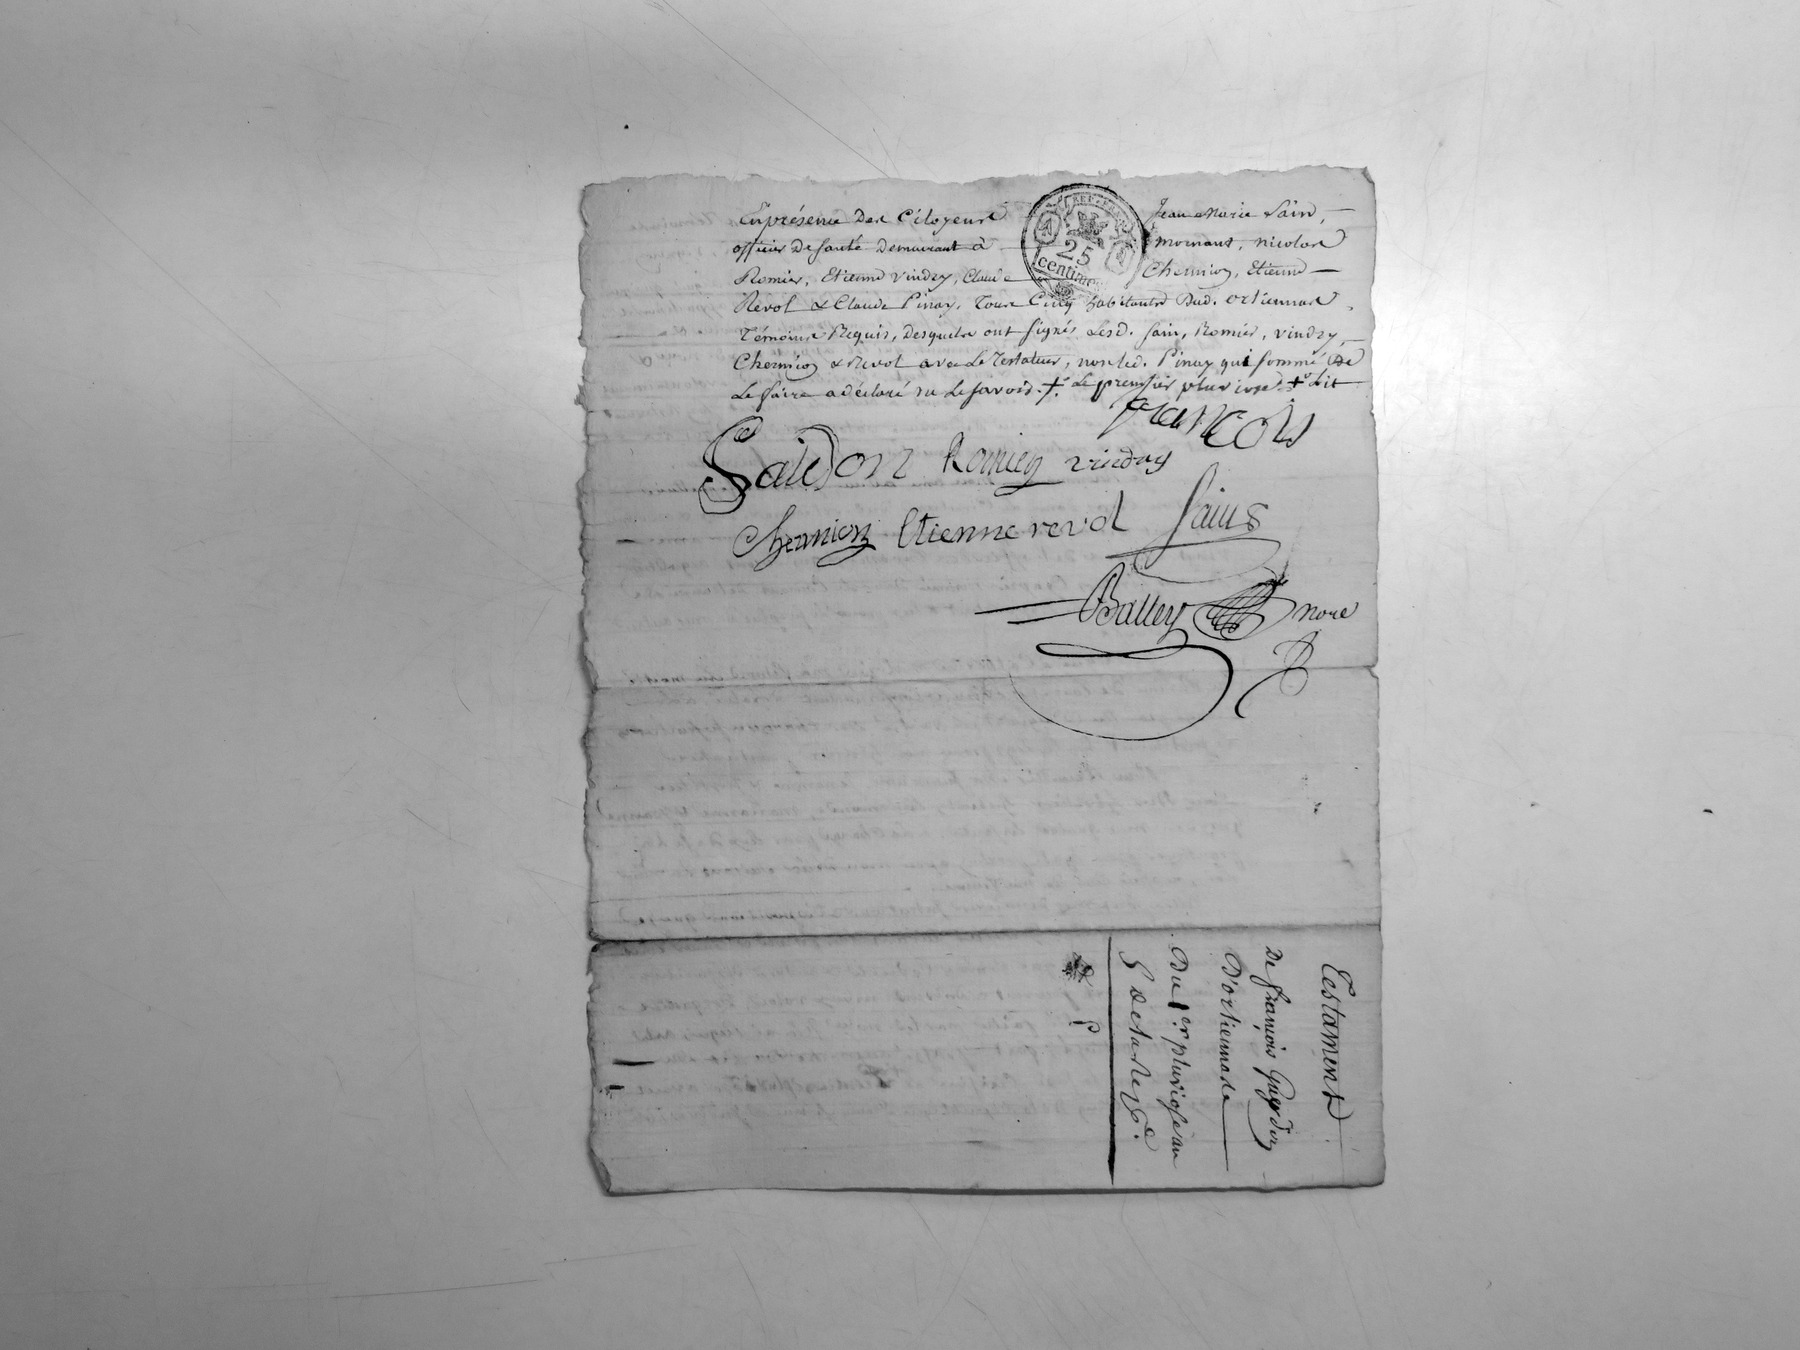 En présence des Citoyens Jean Marie Sain,
officier de santé demeurant à mornant, nicolas
Romier, Etienne vindry, Claude Chermion, Etienne
Revol & Claude Pinay, Tous Cinq habitants dud. ortiennas
Témoins Requis, desquels ont signés lesd. Sain, Romier, vindry,
Chermion & Revol avec le Testateur, non led. Pinay qui sommé de
le faire a déclaré ne le savoir. +. le premier plus +. dit
25
centimes
françois
Romier vindry
Chermion Etienne revol Sain
Balley nore
Testament
De françois
D'ortiennas
Du 1er pluviose an